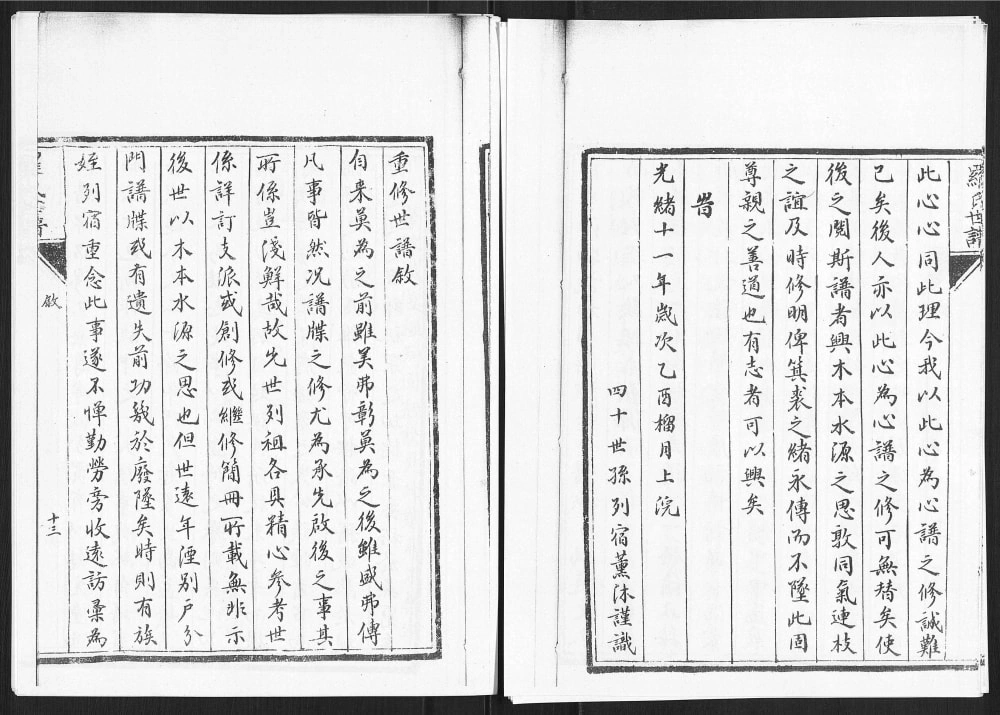 羅氏世譜
此心心同此理今我以此心為心譜之修誠難
已矣後人亦以此心為心譜之修可無替矣使
後之閱斯譜者興木本水源之思敦同氣連枝
之誼及時修明俾箕裘之緒永傳而不墜此固
尊親之善道也有志者可以興矣
旹
光緒十一年歲次乙酉榴月上浣
四十世孫列宿薰沐謹識
重修世譜敘
自来莫為之前雖美弗彰莫為之後雖盛弗傳
凡事皆然况譜牒之修尤為承先啟後之事其
所係豈淺鮮哉故先世列祖各具精心參考世
係詳訂支派或創修或繼修簡冊所載無非示
後世以木本水源之思也但世遠年湮別戶分
門譜牒或有遺失前功幾於廢墜矣時則有族
姪列宿重念此事遂不憚勤勞旁收遠訪彙為
敘
十三